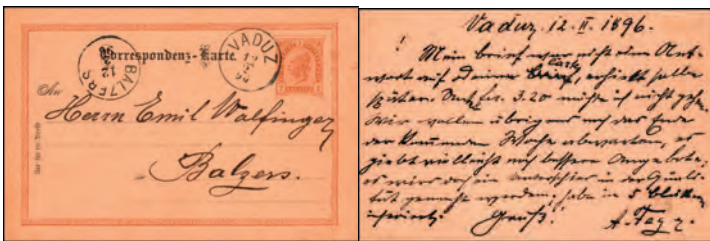 Correspondenz-Karte.
VADUZ
BALZERS
An
Herrn Emil Wolfinger
Balzers.
Vaduz, 12. II. 1896.
!
Mein Brief war nicht eine Ant-
wort auf deine Karte, erhielt selbe
später. Auf fr. 3.20 möchte ich nicht gehen.
Wir wollen übrigens noch das Ende
der kommenden Woche abwarten, es
giebt vielleicht noch bessere Angebote,
es wird doch ein Unterschied in der Quali-
tät gemacht werden; habe in 5 Blätter
inseriert. Gruß!